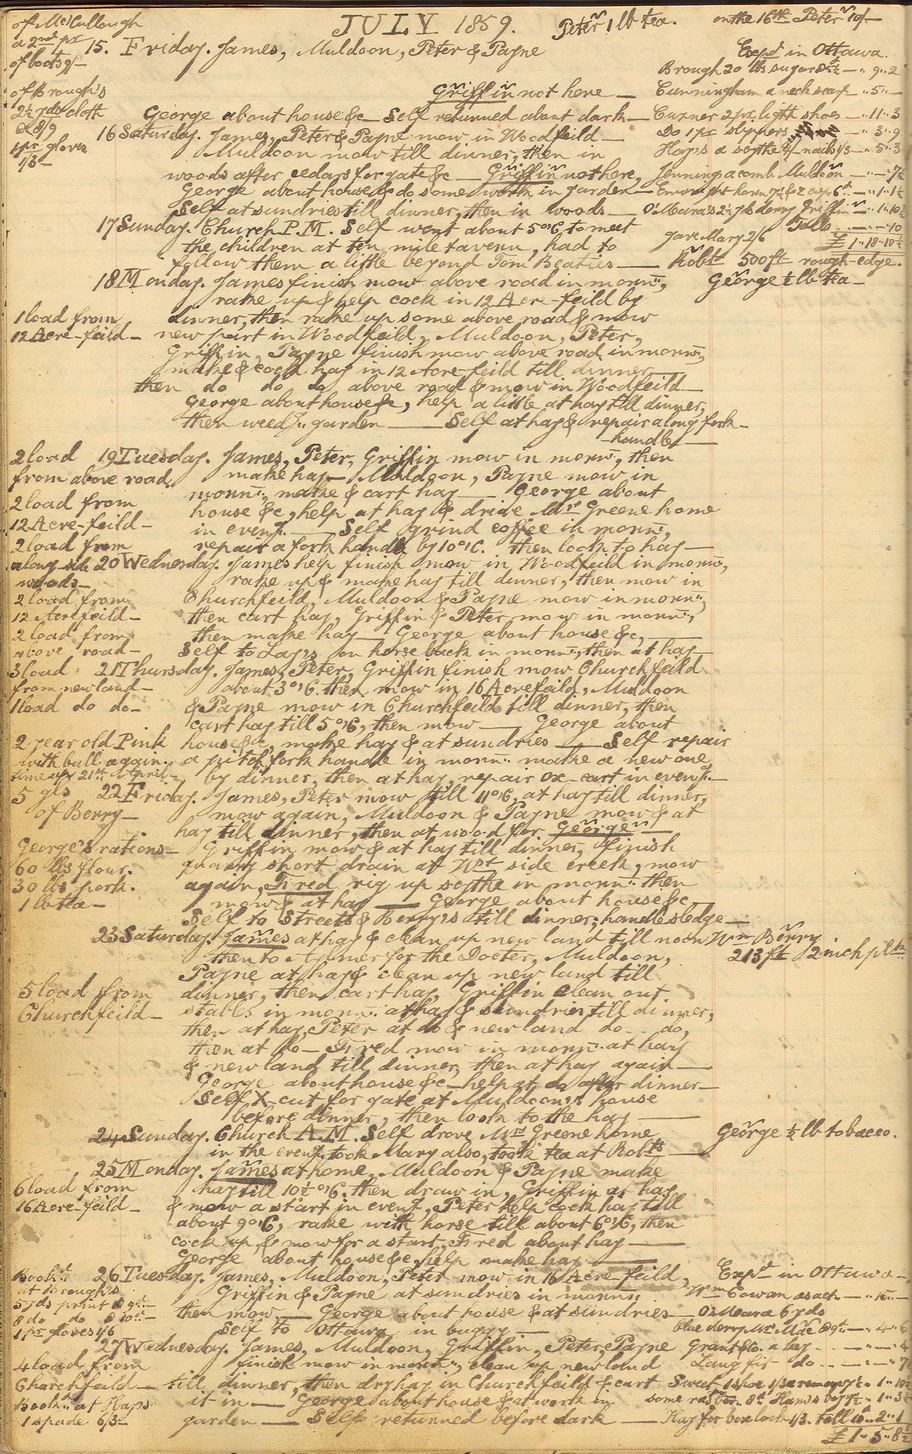 JULY 1859.
Peter 1 lb tea.
on the 16th Peter 10/-
of McCullough
a 2nd pr
of boots 9/-
15. Friday. James, Muldoon, Peter & Payne
Expd in Ottawa.
Brough 20 lbs sugar
Griffin not here —
Cunningham a neck scarf - " 5 " -
of Brough's
2½ yds cloth
@ 8/9
1 pr gloves
1/3 —
George about house &c — Self returned about dark —
Cuzner 2 pr. light shoes - " 11 " 3
16 Saturday. James, Peter & Payne mow in Woodfeild —
Do 1 pr slippers - " 3 " 9
Muldoon mow till dinner, then in
Hays a scythe 4/- nails 1/3 - " 5 " 3
woods after cedars for gate &c — Griffin not here,
Jennings a comb Muldoon
George about house & do some work in garden —
Self at sundries till dinner, then in woods —
O'Meara
17 Sunday. Church P.M. Self went about 5 o'C, to meet
the children at ten mile tavern, had to
gave Mary 2/6
£ 1 " 18 " 10½
follow them a little beyond Tom Beaties —
Robt 500 ft rough-edge.
18 Monday. James finish mow above road in morng,
George ½ lb tea —
rake up & help cock in 12 Acre-feild by
1 load from
12 Acre-feild —
dinner, then rake up some above road & mow
new part in Woodfeild, Muldoon, Peter,
Griffin, Payne finish mow above road in morng,
make & cock hay in 12 Acre feild till dinner
then do do do above road & mow in Woodfeild —
George about house &c, help a little at hay till dinner,
then weedg garden — Self at hay & repair along fork-
handle —
2 load
from above road.
19 Tuesday. James, Peter, Griffin mow in morng, then
make hay — Muldoon, Payne mow in
2 load from
12 Acre-feild —
morng, make & cart hay — George about
house &c, help at hay & drive Mrs Greene home
in eveng. — Self grind coffee in morng,
2 load from
along side
woods —
repair a fork handle by 10 o'C. then look to hay —
20 Wednesday. James help finish mow in Woodfeild in morng,
rake up & make hay till dinner, then mow in
2 load from
12 Acrefeild —
Churchfeild, Muldoon & Payne mow in morng,
then cart hay, Griffin & Peter mow in morng,
2 load from
above road —
then make hay — George about house &c, —
Self to Lays on horse back in morng, then at hay —
3 load
from new land —
1 load do do —
21 Thursday. James, Peter, Griffin finish mow Churchfeild
about 3 o'C. then mow in 16 Acrefeild, Muldoon
& Payne mow in Churchfeild till dinner, then
cart hay till 5 o'C, then mow — George about
2 year old Pink
with bull again.
time up 21st April —
house &c, make hay & at sundries — Self repair
a put of fork handle in morng. make a new one
by dinner, then at hay, repair ox-cart in eveng. —
5 gls
of Berry —
22 Friday. James, Peter mow till 11 o'C, at hay till dinner,
mow again, Muldoon & Payne mow & at
hay till dinner, then at wood for George
George's rations —
60 lbs flour.
30 lbs pork.
1 lb tea —
Griffin mow & at hay till dinner, finish
short drain at Wst side creek, mow
again, Fired rig up scythe in morng. then
mow & at hay — George about house &c,
Self to Streets & Berry's till dinner; handle sledge —
23 Saturday. James at hay & clean up new land till noon
Wm Berry
213 ft 2 inch
then to Aylmer for the Docter, Muldoon,
Payne at hay & clean up new land till
5 load from
Churchfeild —
dinner, then cart hay, Griffin clean out
stables in morng. at hay & sundries till dinner,
then at hay, Peter at do & new land do do,
then at do — Fired mow in morng. at hay
& new land till dinner, then at hay again —
George about house &c — help at do after dinner —
Self X-cut for gate at Muldoon's house
before dinner, then look to the hay —
24 Sunday. Church A.M. Self drove Mrs Greene home
George ½ lb tobacco.
in the eveng. took Mary also, took tea at Robts —
25 Monday. James at home, Muldoon & Payne make
6 load from
16 Acre-feild —
hay till 10½ o'C, then draw in, Griffin at hay
& mow a start in eveng, Peter help cock hay till
about 9 o'C, rake with horse till about 6 o'C, then
cock up & mow for a start, Fired about hay —
George about house &c, help make hay —
Bookd
at Brough's
5 yds print @ 9d
8 do do @ 10d —
1 pr gloves 1/6
26 Tuesday. James, Muldoon, Peter mow in 16 Acre feild,
Expd in Ottawa —
Griffin & Payne at sundries in morng,
Wm Cowan
then mow — George about house & at sundries —
O'Meara 6 yds
Self to Ottawa in buggy —
blue derry
27 Wednesday. James, Muldoon, Griffin, Peter, Payne
Grant for a hay
4 load from
Churchfeild —
finish mow in morng, clean up new land
Lang for do
till dinner, then dry hay in Churchfeild & cart
Sweet 1 shoe 1/3
Bookd at Hays
1 spade 6/3 —
it in — George about house & at work in
garden — Self returned before dark —
Hay for box lock 1/3.
£ 1 " 5 " 8½